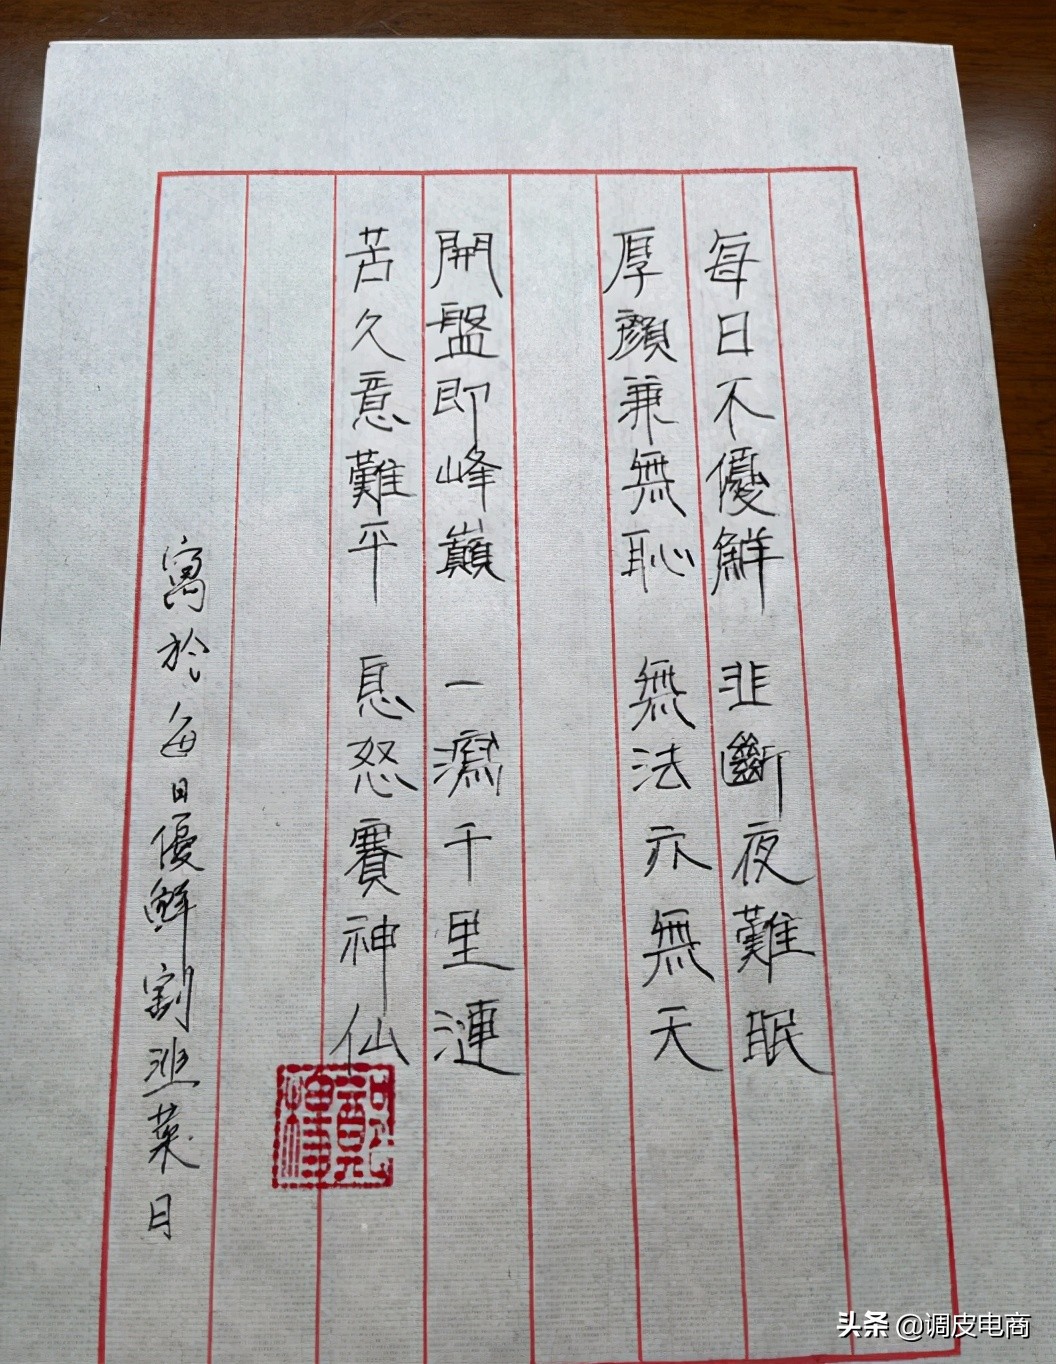 每日不優鮮 韭斷夜難眠
厚顏兼無恥 無法亦無天
開盤即峰巔 一瀉千里漣
苦久意難平 息怒賽神仙
寫於每日優鮮割韭菜日
头条 @调皮电商